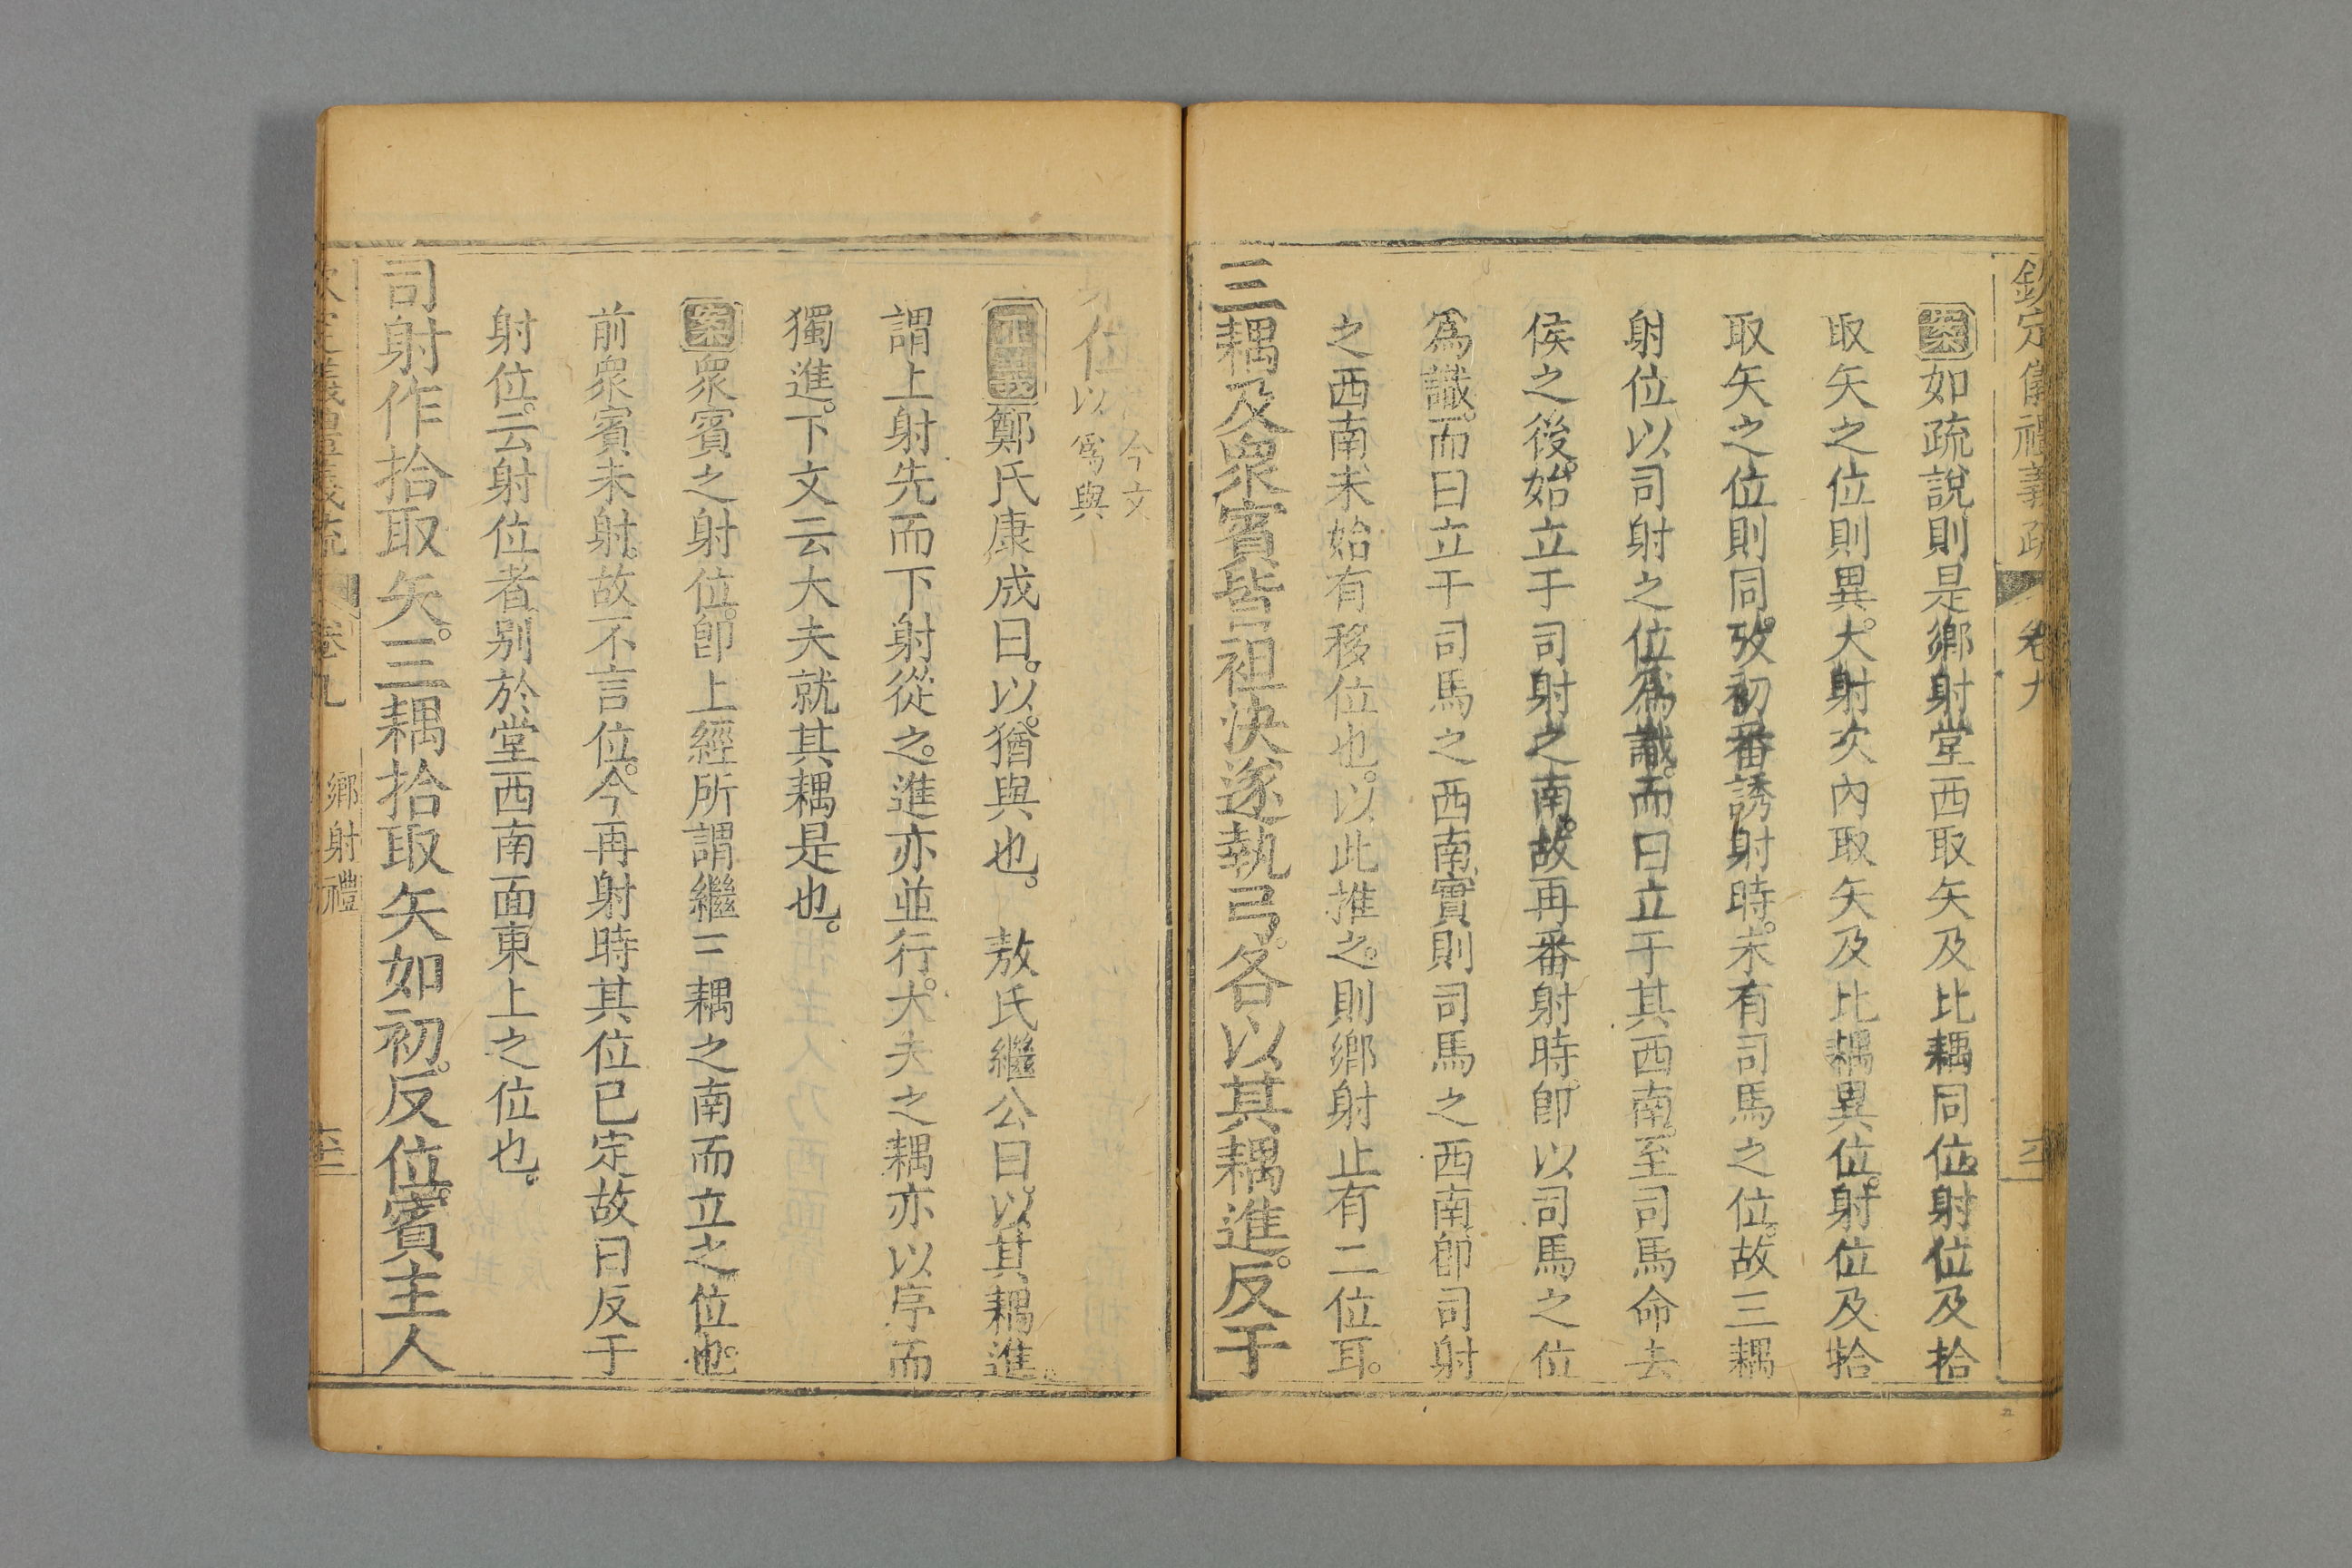 欽定儀禮義疏 卷九
案如疏說則是鄉射堂西取矢及比耦同位。射位及拾
取矢之位則異。大射次內取矢及比耦異位。射位及拾
取矢之位則同。攷初番誘射時。未有司馬之位。故三耦
射位以司射之位爲識。而曰立于其西南。至司馬命去
侯之後。始立于司射之南。故再番射時。卽以司馬之位
爲識。而曰立于司馬之西南。實則司馬之西南。卽司射
之西南。未始有移位也。以此推之。則鄉射止有二位耳。
三耦及衆賓皆袒決遂執弓。各以其耦進。反于
射位 今文以爲與
正義鄭氏康成曰。以。猶與也。 敖氏繼公曰。以其耦進。
謂上射先而下射從之。進亦並行。大夫之耦亦以序而
獨進。下文云大夫就其耦是也。
案衆賓之射位。卽上經所謂繼三耦之南而立之位也。
前衆賓未射。故不言位。今再射時其位已定故曰反于
射位。云射位者。别於堂西南面東上之位也。
司射作拾取矢。三耦拾取矢如初。反位。賓主人
卷九 鄉射禮